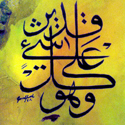 وهو على كل شيء قدير